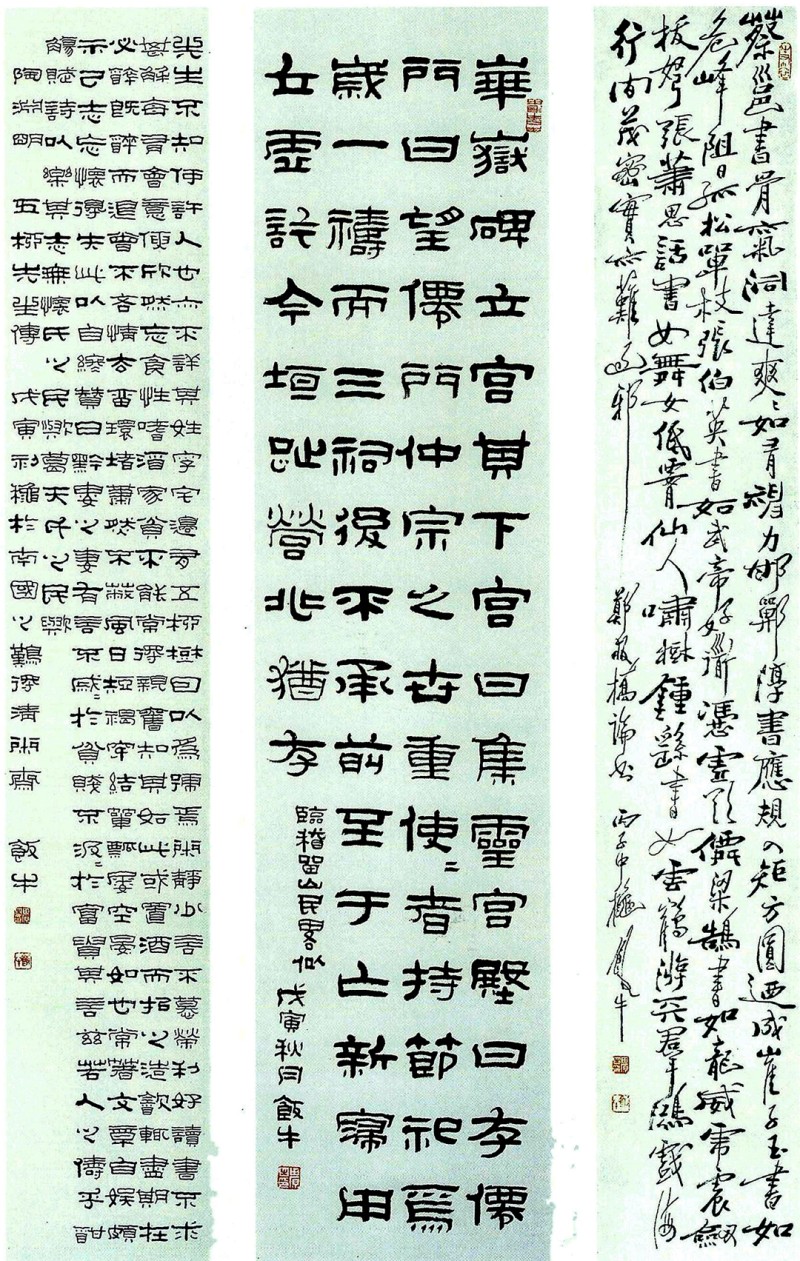 蔡邕書骨炁洞達爽〻如有神力邯鄲淳書應規入矩方圓迺成崔子玉書如
危峰阻日孤松單枝張伯英書如武帝好道憑虛欲僊梁鵠書如龍威虎震劍
拔弩張蕭思話書如舞女低腰仙人嘯樹鍾繇書如雲鶴游天羣鴻戲海
行間茂密實亦難過邪
鄭板橋論書 丙子中秋飯牛
華嶽碑立宮其下宮曰集靈宮殿曰存僊
門曰望僊門仲宗之世重使〻者持節祀焉
歲一禱而三祠後不承前至于亡新寖用
丘虛訖今垣趾營兆猶存
臨稽留山民畧似 戊寅秋月飯牛
先生不知何許人也亦不詳其姓字宅邊有五柳樹因以爲號焉閑靜少言不慕榮利好讀書不求
甚解每有會意便欣然忘食性嗜酒家貧不能常得親舊知其如此或置酒而招之造飲輒盡期在
必醉既醉而退曾不吝情去留環堵蕭然不蔽風日短褐穿結簞瓢屢空晏如也常著文章自娛頗
示己志忘懷得失此以自終贊曰黔婁之妻有言不戚〻於貧賤不汲〻於富貴其言茲若人之儔乎酣
觴賦詩以樂其志無懷氏之民歟葛天氏之民歟
陶淵明 五柳先生傳 戊寅初秋於南國之得清閑齋 飯牛